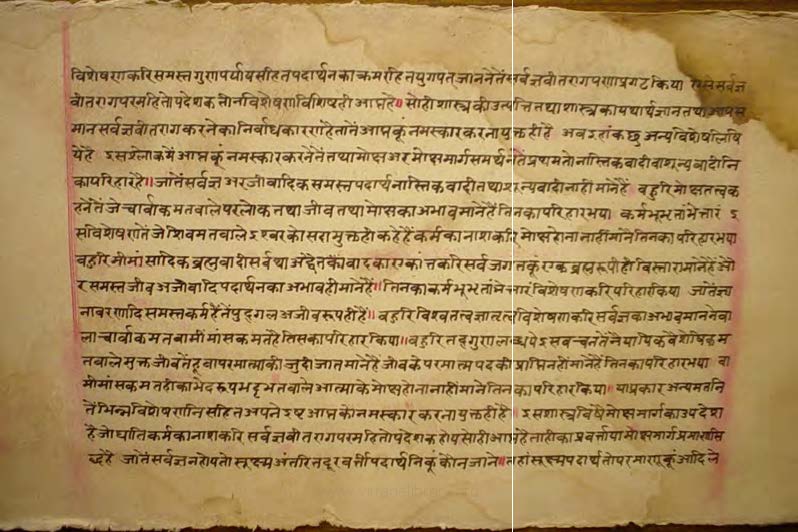 विशेषणकरि समस्त गुणपर्यायसहित पदार्थनका क्रमरहित युगपत् जाननेतैं सर्वज्ञवीतरागपणा प्रगट किया ऐसे सर्वज्ञ
वीतराग परमहितोपदेशक तीन विशेषण विशिष्टही आप्त है॥ सोही शास्त्रकी उत्पत्ति तथा शास्त्रका यथार्थज्ञान तथा आपस
मान सर्वज्ञवीतराग करनेका निर्बाध कारण है तातैं आप्तकूं नमस्कार करना युक्तही है अब इहां कछु अन्य विशेष लिखि
ये है इस श्लोकमें आप्तकूं नमस्कार करनेतैं तथा मोक्ष अर मोक्षमार्ग समर्थनतैं प्रथमतो नास्तिकवादी वा शून्यवादीनि
का परिहार है॥ जातैं सर्वज्ञ अर जीवादिक समस्त पदार्थ नास्तिकवादी तथा शून्यवादी नाही मानेहैं बहुरि मोक्षतत्वक
हनेतैं जे चार्वाकमतवाले परलोक तथा जीव तथा मोक्षका अभाव मानेहैं तिनका परिहार भया कर्मभूभृतां भेत्तारं इ
स विशेषणतैं जे शिवमतवाले ईश्वरको सदा मुक्तही कहेहैं कर्मका नाशकरि मोक्ष होना नाहीं मानैं तिनका परिहार भया
बहुरि मीमांसादिक ब्रह्मवादी सर्वथा अद्वैतका वादकार एकांतकरि सर्व जगतकूं एक ब्रह्मरूपीही विस्तारा मानेहैं ओ
र समस्त जीव अजीवादि पदार्थनका अभावही मानेहैं॥ तिनका कर्मभूभृतां भेत्तारं विशेषणकरि परिहार किया जातैं ज्ञा
नावरणादि समस्त कर्म हैं ते पुद्गल अजीवरूपही हैं॥ बहुरि विश्वतत्वज्ञातृत्व विशेषणकरि सर्वज्ञका अभाव माननेवा
ला चार्वाकमत वा मीमांसकमत है तिसका परिहार किया॥ बहुरि तद्गुणलब्धये इस वचनतैं नैयायिक वैशेषिकम
तवाले मुक्तजीवतैंहू वा परमात्माकी जुदी जात मानेहै जीवके परमात्मपदकी प्राप्ति नही मानेहै तिनका परिहार भया वा
मीमांसकमतहीका भेदरूप भट्टमतवाले आत्माके मोक्ष होना नाहीं माने तिनका परिहार किया॥ या प्रकार अन्यमतनि
तैं भिन्न विशेषणनि सहित अपने इष्ट आप्तकों नमस्कार करना युक्तही है॥ इस शास्त्रविषै मोक्षमार्गका उपदेश
है जो घातिकर्मका नाशकरि सर्वज्ञवीतराग परमहितोपदेशक होय सोही आप्त है ताहीका प्रवर्त्ताया मोक्षमार्ग प्रमाणसि
द्ध है जातैं सर्वज्ञ न होय तो सूक्ष्म अंतरित दूरवर्त्ती पदार्थनिकूं कौन जाने॥ तहां सूक्ष्म पदार्थ तो परमाणूकूं आदि ले